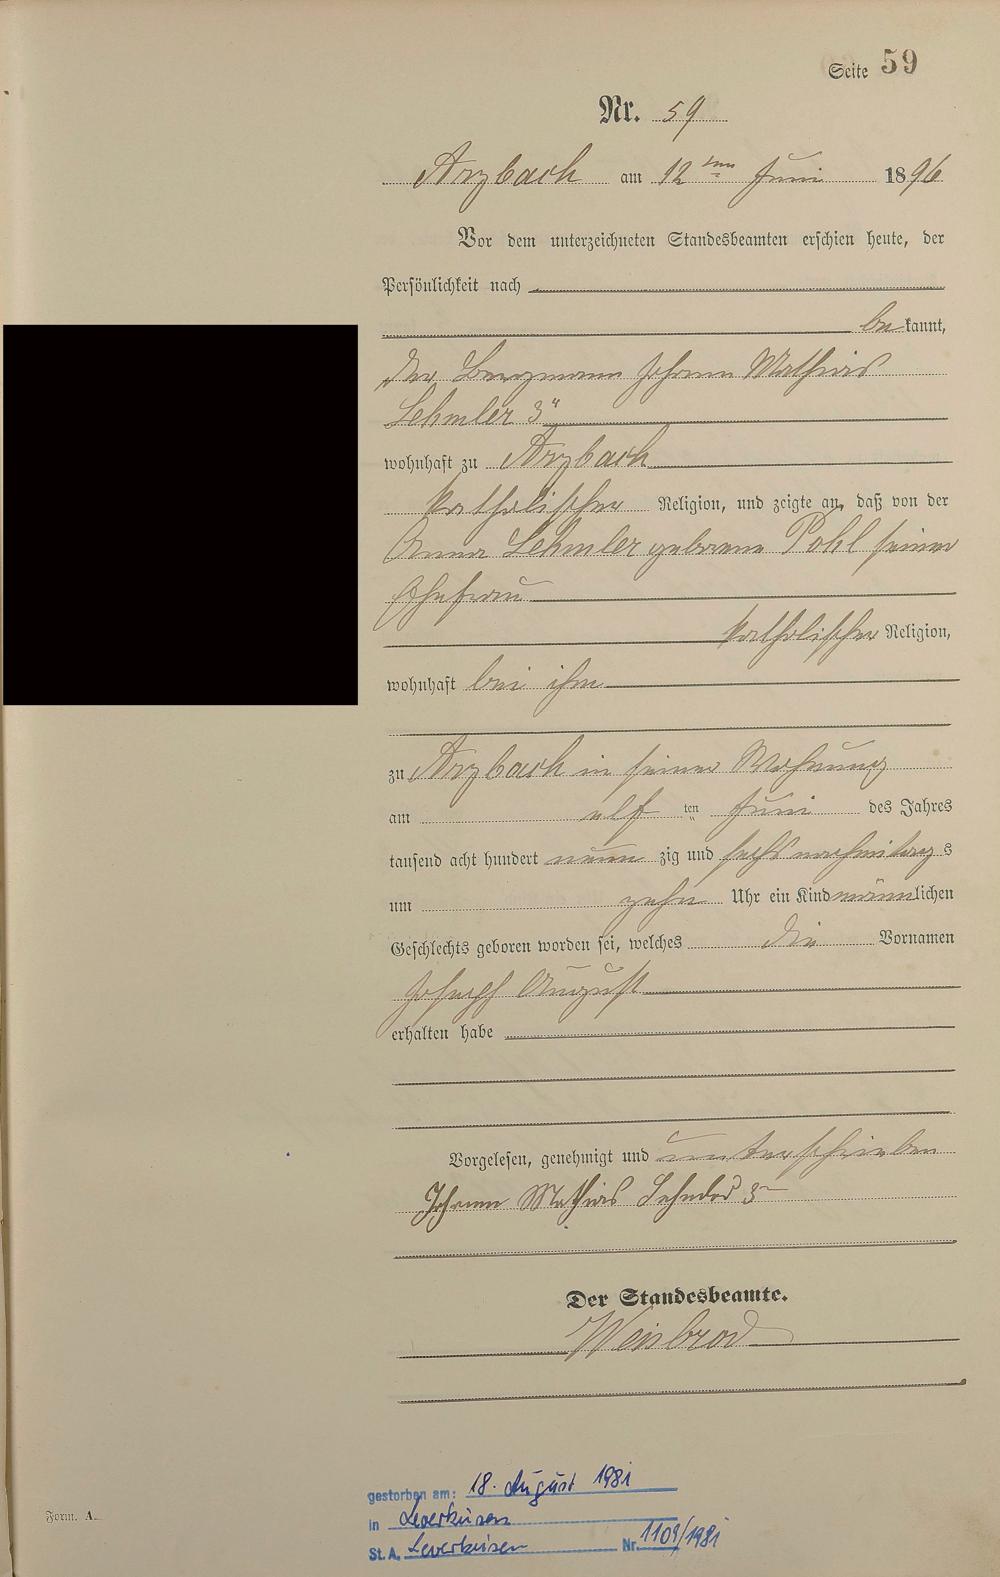 Seite 59
Nr. 59
Arzbach am 12ten Juni 1896
Vor dem unterzeichneten Standesbeamten erschien heute, der
Persönlichkeit nach
bekannt,
der Bergmann Johann Mathias
Lehmler 3"
wohnhaft zu Arzbach
katholischer Religion, und zeigte an, daß von der
Anna Lehmler geborene Pohl seiner
Ehefrau
katholischer Religion,
wohnhaft bei ihm
zu Arzbach in seiner Wohnung
am elf ten Juni des Jahres
tausend acht hundert neun zig und sechs nachmittag s
um zehn Uhr ein Kind männlichen
Geschlechts geboren worden sei, welches die Vornamen
Joseph August
erhalten habe
Vorgelesen, genehmigt und unterschrieben
Johann Mathias Lehmler 3
Der Standesbeamte.
Weisbrod
gestorben am: 18. August 1981
in Leverkusen
St. A. Leverkusen Nr. 1109/1981
Form. A.